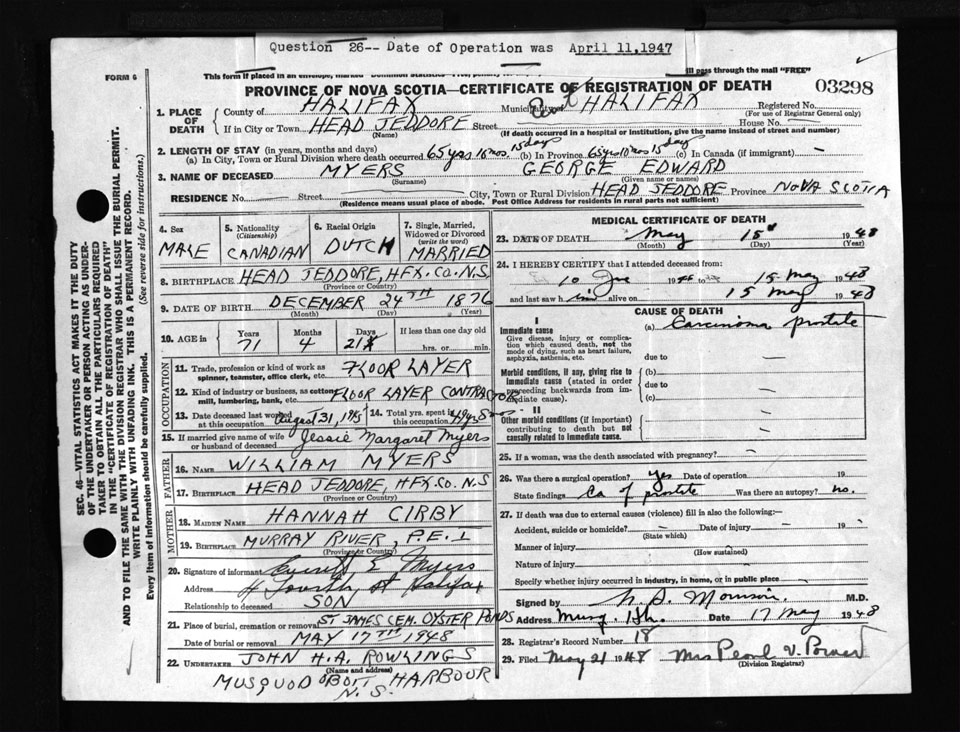 Question 26-- Date of Operation was April 11, 1947
FORM 6
This form if placed in an envelope, marked
ill pass through the mail "FREE"
PROVINCE OF NOVA SCOTIA—CERTIFICATE OF REGISTRATION OF DEATH
03298
1. PLACE OF DEATH
County of HALIFAX
Municipality of HALIFAX
Registered No.
(For use of Registrar General only)
If in City or Town HEAD JEDDORE Street
House No. —
(Name)
(If death occurred in a hospital or institution, give the name instead of street and number)
2. LENGTH OF STAY (in years, months and days)
(a) In City, Town or Rural Division where death occurred 65 yrs 10 mos. 15 days (b) In Province 65 yrs 10 mos 15 days (c) In Canada (if immigrant) —
3. NAME OF DECEASED MYERS GEORGE EDWARD
(Surname) (Given name or names)
RESIDENCE No. Street City, Town or Rural Division HEAD JEDDORE Province NOVA SCOTIA
(Residence means usual place of abode. Post Office Address for residents in rural parts not sufficient)
4. Sex
MALE
5. Nationality
(Citizenship)
CANADIAN
6. Racial Origin
DUTCH
7. Single, Married, Widowed or Divorced
(write the word)
MARRIED
8. BIRTHPLACE HEAD JEDDORE, HFX. CO. N.S.
(Province or Country)
9. DATE OF BIRTH DECEMBER 24TH 1876
(Month) (Day) (Year)
10. AGE in
Years Months Days If less than one day old
71 4 21 hrs. or min.
OCCUPATION
11. Trade, profession or kind of work as spinner, teamster, office clerk, etc. FLOOR LAYER
12. Kind of industry or business, as cotton mill, lumbering, bank, etc. FLOOR LAYER CONTRACTOR
13. Date deceased last worked at this occupation August 31, 1945
14. Total yrs. spent in this occupation 49 yrs 8 mos
15. If married give name of wife or husband of deceased Jessie Margaret Myers
FATHER
16. NAME WILLIAM MYERS
17. BIRTHPLACE HEAD JEDDORE, HFX. CO. N.S
(Province or Country)
MOTHER
18. MAIDEN NAME HANNAH CIRBY
19. BIRTHPLACE MURRAY RIVER, P.E.I
(Province or Country)
20. Signature of informant Everett E Myers
Address 4 Fourth, St Halifax
Relationship to deceased SON
21. Place of burial, cremation or removal ST JAMES CEM. OYSTER PONDS
Date of burial or removal MAY 17TH 1948
22. UNDERTAKER JOHN H.A. ROWLINGS
(Name and address)
MUSQUODOBOIT HARBOUR
N.S.
MEDICAL CERTIFICATE OF DEATH
23. DATE OF DEATH May 15th 1948
(Month) (Day) (Year)
24. I HEREBY CERTIFY that I attended deceased from:
10 15 May 1948
and last saw him alive on 15 May 1948
CAUSE OF DEATH
I
Immediate cause
Give disease, injury or complication which caused death, not the mode of dying, such as heart failure, asphyxia, asthenia, etc.
(a) Carcinoma prostate
due to —
Morbid conditions, if any, giving rise to immediate cause (stated in order proceeding backwards from immediate cause).
(b) —
due to —
(c) —
II
Other morbid conditions (if important) contributing to death but not causally related to immediate cause.
25. If a woman, was the death associated with pregnancy? —
26. Was there a surgical operation? Yes Date of operation 19
State findings Ca of prostate Was there an autopsy? no.
27. If death was due to external causes (violence) fill in also the following:—
Accident, suicide or homicide? — Date of injury — 19
(State which)
Manner of injury
(How sustained)
Nature of injury
Specify whether injury occurred in industry, in home, or in public place
Signed by Morrison M.D.
Address Musq. Hbr. Date 17 May 1948
28. Registrar's Record Number 18
29. Filed May 21 1948 Mrs Pearl V. Power
(Division Registrar)
SEC. 46—VITAL STATISTICS ACT MAKES IT THE DUTY
OF THE UNDERTAKER OR PERSON ACTING AS UNDERTAKER TO OBTAIN ALL THE PARTICULARS REQUIRED
IN THE "CERTIFICATE OF REGISTRATION OF DEATH"
AND TO FILE THE SAME WITH THE DIVISION REGISTRAR WHO SHALL ISSUE THE BURIAL PERMIT.
WRITE PLAINLY WITH UNFADING INK. THIS IS A PERMANENT RECORD.
Every item of information should be carefully supplied. (See reverse side for instructions.)